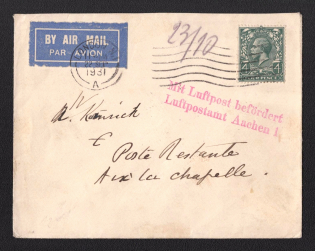 BY AIR MAIL
PAR AVION
1931
A
23/10
Mit Luftpost befördert
Luftpostamt Aachen 1.
Poste Restante
Aix la chapelle.